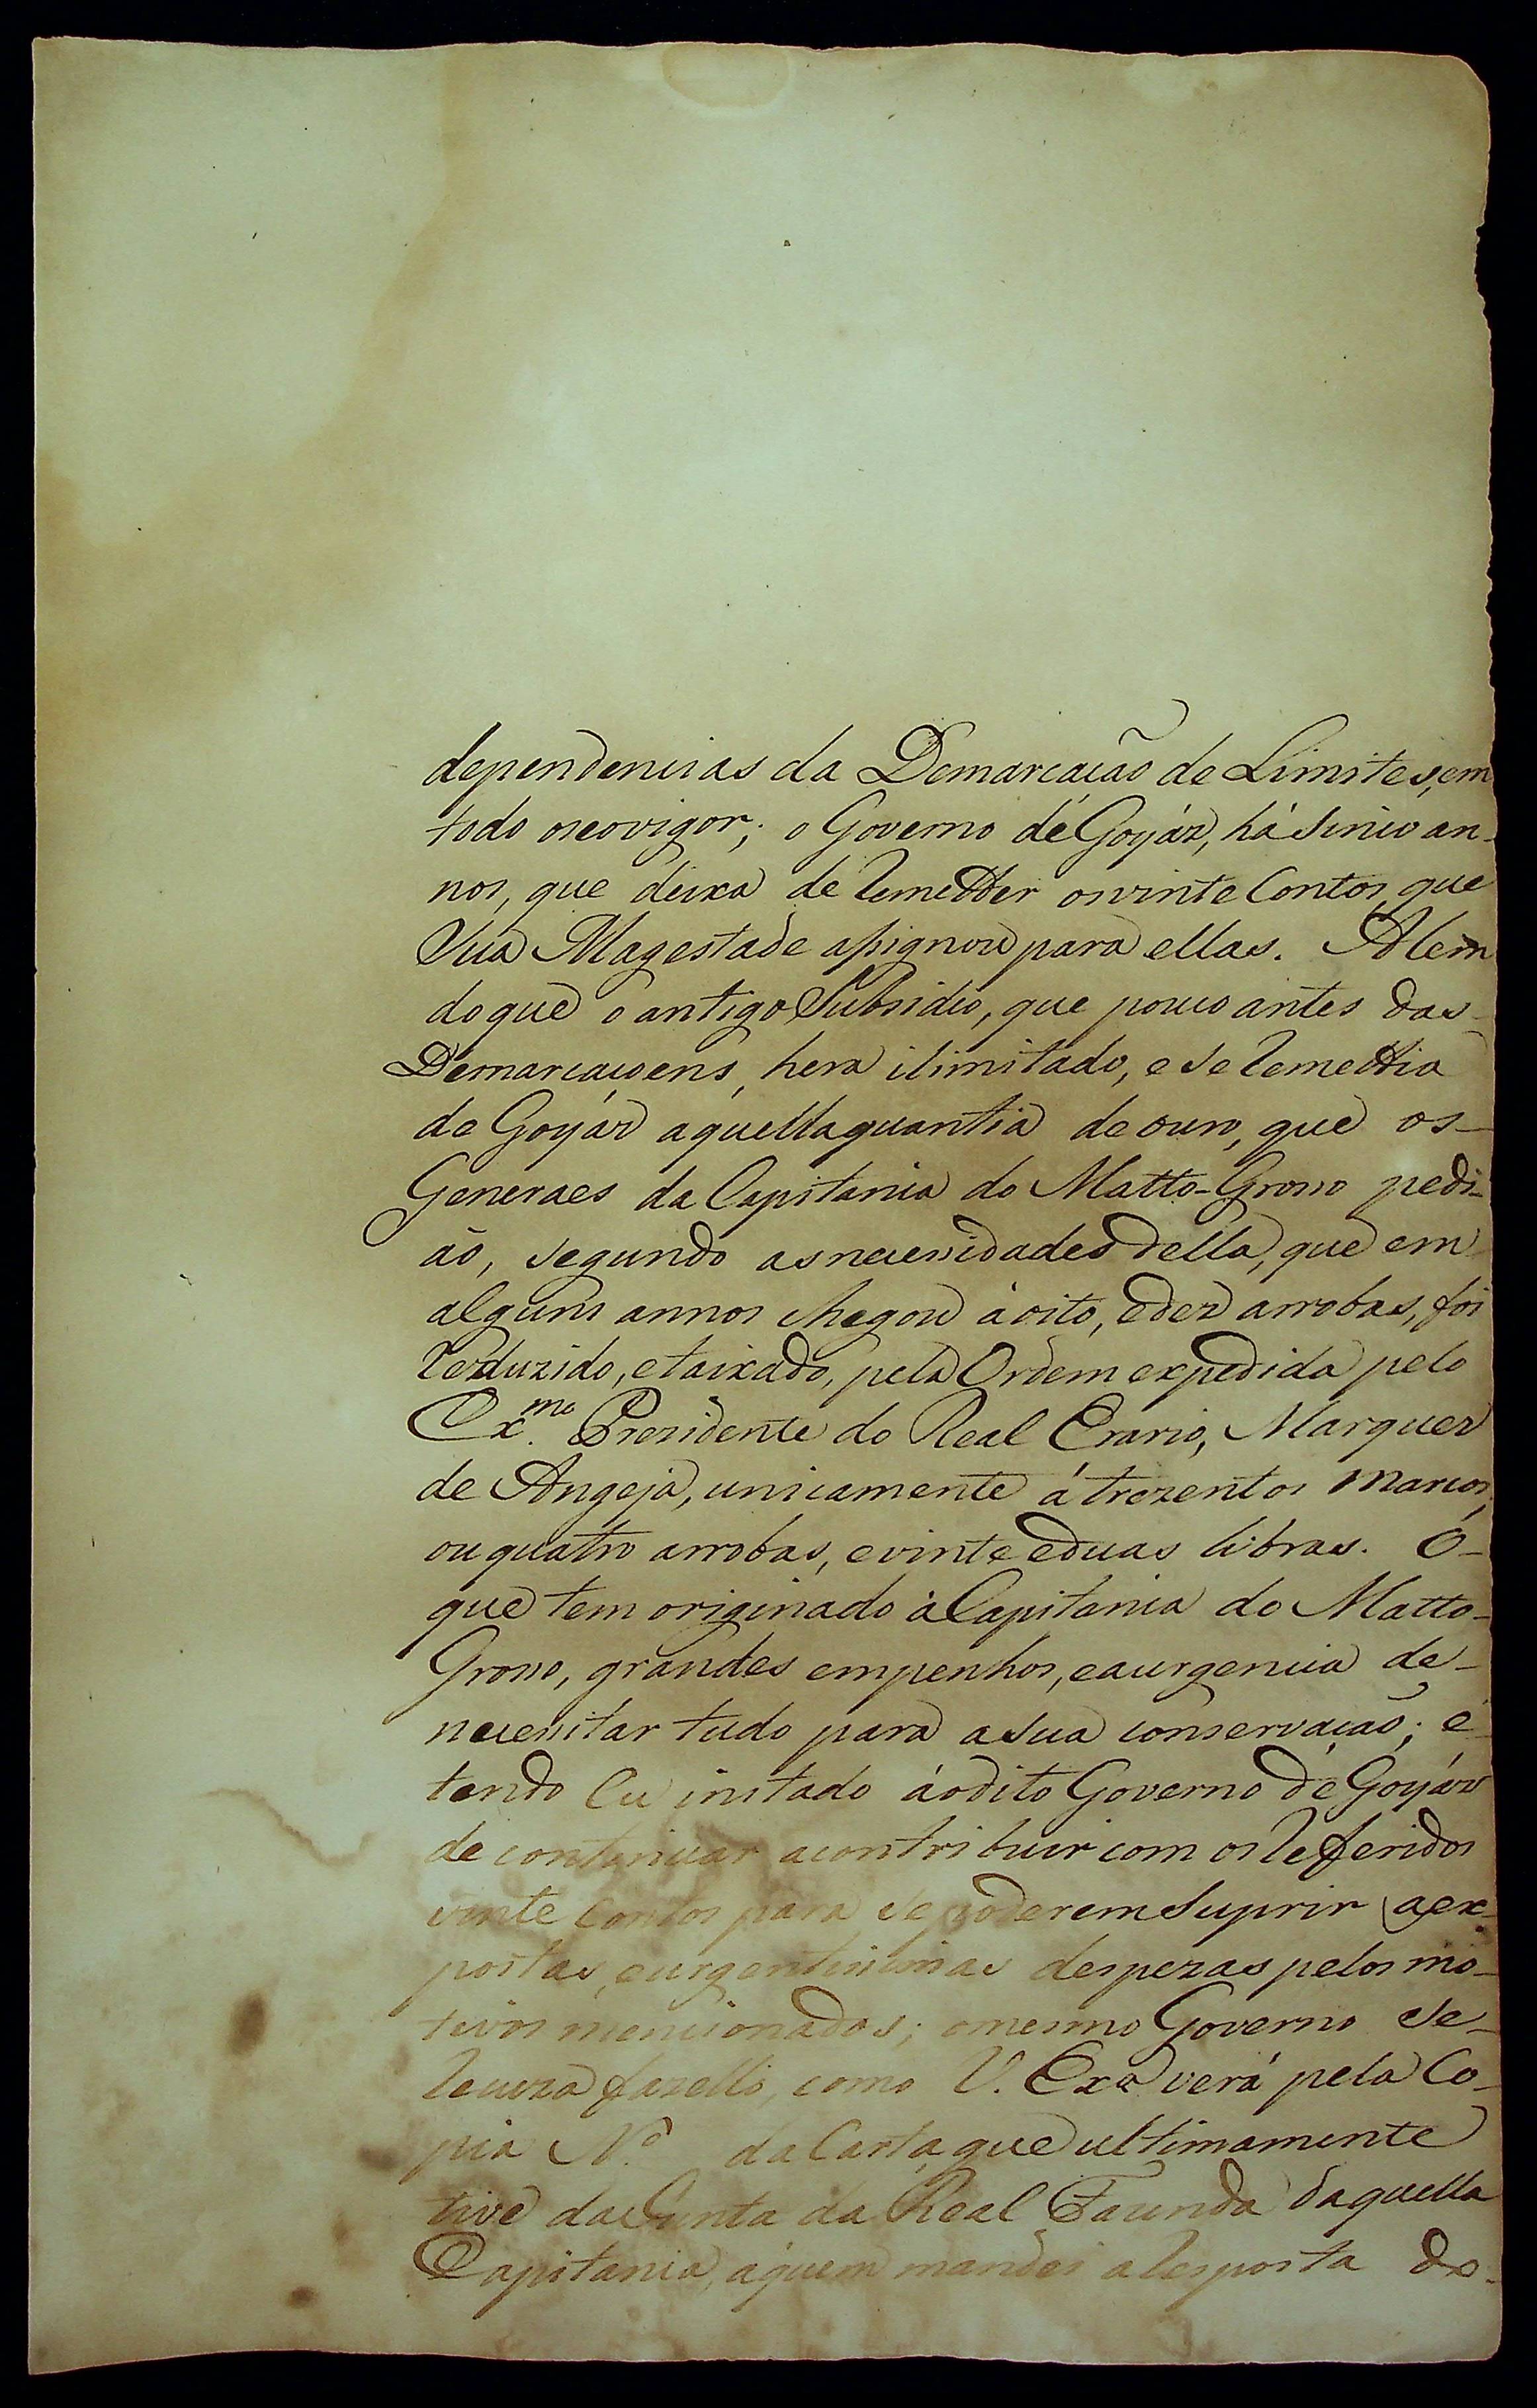 dependencias da Demarcação de Limites, em
todo oseovigor; o Governo de Goyáz, há sinco an-
nos, que deixa de Remetter osvinte Contos, que
Sua Magestade assignou para ellas. Alem
doque o antigo Subsidio, que pouco antes das-
Demarcaçoens, hera ilimitado, e se Remettia
de Goyáz aquellaquantia de ouro, que os-
Generaes da Capitania do Matto-Grosso pedi-
aõ, segundo as necessidades della, que em
alguns annos chegou á oito, edez arrobas, foi
Reduzido, etaixado, pela Ordem expedida pelo
Ex.mo Prezidente do Real Erario, Marquez
de Angeja, unicamente á trezentos marcos,
ou quatro arrobas, evinte eduas libras. O-
que tem originado á Capitania do Matto-
Grosso, grandes empenhos, eaurgencia de-
necessitar tudo para a sua conservação; e
tendo Eu instado áodito Governo de Goyáz
de continuar acontribuir com os Referidos
vinte Contos para se poderem Suprir as ex-
postas, eurgentissimas despezas pelos mo-
tivos mencionados; omesmo Governo se-
Recuza fazello, como V. Exa verá pela Co-
pia N.o da Carta, que ultimamente
tive da Junta da Real Fazenda daquella
Capitania, áquem mandei a Resposta do-